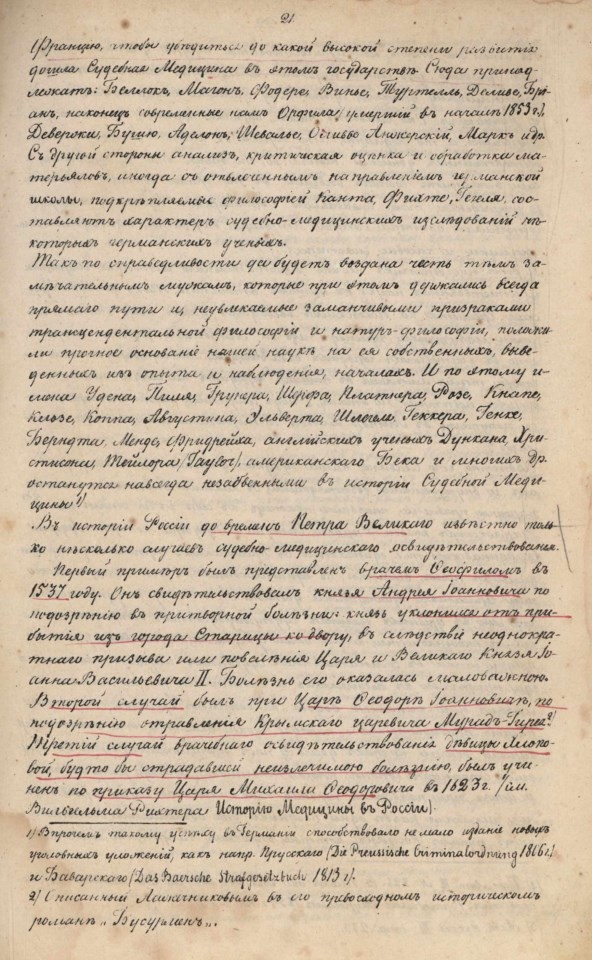 21
Францію, чтобы убѣдиться до какой высокой степени развитія
дошла Судебная Медицина въ этомъ государствѣ. Сюда принад-
лежатъ: Беллокъ, Магонъ, Фодере, Винье, Туртелль, Деливье, Брі-
анъ, наконецъ современные намъ Орфила, умершій въ началѣ 1853 г.,
Девержи, Адэлонъ, Шевалье, Оливье Анжерскій, Маркъ и др.
Съ другой стороны анализъ, критическая оцѣнка и обработка ма-
терьяловъ, иногда съ отвлеченнымъ направленіемъ германской
школы, подкрѣпляемых философіей Канта, Фихте, Гегеля, со-
ставляютъ характеръ судебно-медицинскихъ изслѣдованій нѣ-
которыхъ германскихъ ученыхъ.
Такъ по справедливости да будетъ воздана честь тѣмъ за-
мѣчательнымъ мужамъ, которые при этомъ держались всегда
прямаго пути и, неувлекаемые заманчивыми призраками
трансцендентальной философіи и натуръ-философіи, положи-
ли прочное основаніе нашей наукѣ на ея собственныхъ, выве-
денныхъ изъ опыта и наблюденія, началахъ. И по этому и-
мена Удена, Пиля, Грунера, Шерфа, Платнера, Розе, Кнапе,
Клозе, Коппа, Августина, Эльверта, Геккера, Генке,
Берндта, Менде, Фридрейха, англійскихъ ученыхъ Дункана, Хри-
стисона, Тейлора /Taylor/, американскаго Бека и многихъ др.
останутся навсегда незабвенными въ исторіи Судебной Меди-
цины 1)
Въ исторіи Россіи до временъ Петра Великаго извѣстно толь-
ко нѣсколько случаевъ судебно-медицинскаго освидѣтельствованія.
Первый примѣръ былъ представленъ врачемъ Ѳеофиломъ въ
1537 году. Онъ свидѣтельствовалъ князя Андрея Іоанновича по
подозрѣнію въ притворной болѣзни: князь уклонился отъ при-
бытія изъ города Старицы ко двору, въ слѣдствіе неоднокра-
тнаго призыва или повелѣнія Царя и Великаго Князя Іо-
анна Васильевича II. Болѣзнь его оказалась маловажною.
Второй случай былъ при Царѣ Ѳеодорѣ Іоанновичѣ, по
подозрѣнію отравленія Крымскаго царевича Мурадъ-Гирея 2)
Третій случай врачебнаго освидѣтельствованія дѣвицы Хлопо-
вой, будто бы страдавшей неизлечимою болѣзнію, былъ учи-
ненъ по приказу Царя Михаила Ѳеодоровича въ 1623 г. /см.
Вильгельма Рихтера Исторію Медицины въ Россіи).
1) Впрочемъ такому успѣху въ Германіи способствовало не мало изданіе новыхъ
уголовныхъ уложеній, какъ напр. Прусскаго /Die Preussische Criminalordnung 1806 г./
и Баварскаго /Das Baersche Strafgesetzbuch 1813 г/.
2) Описанный Лажечниковымъ въ его превосходномъ историческомъ
романѣ „Бусурманъ„.